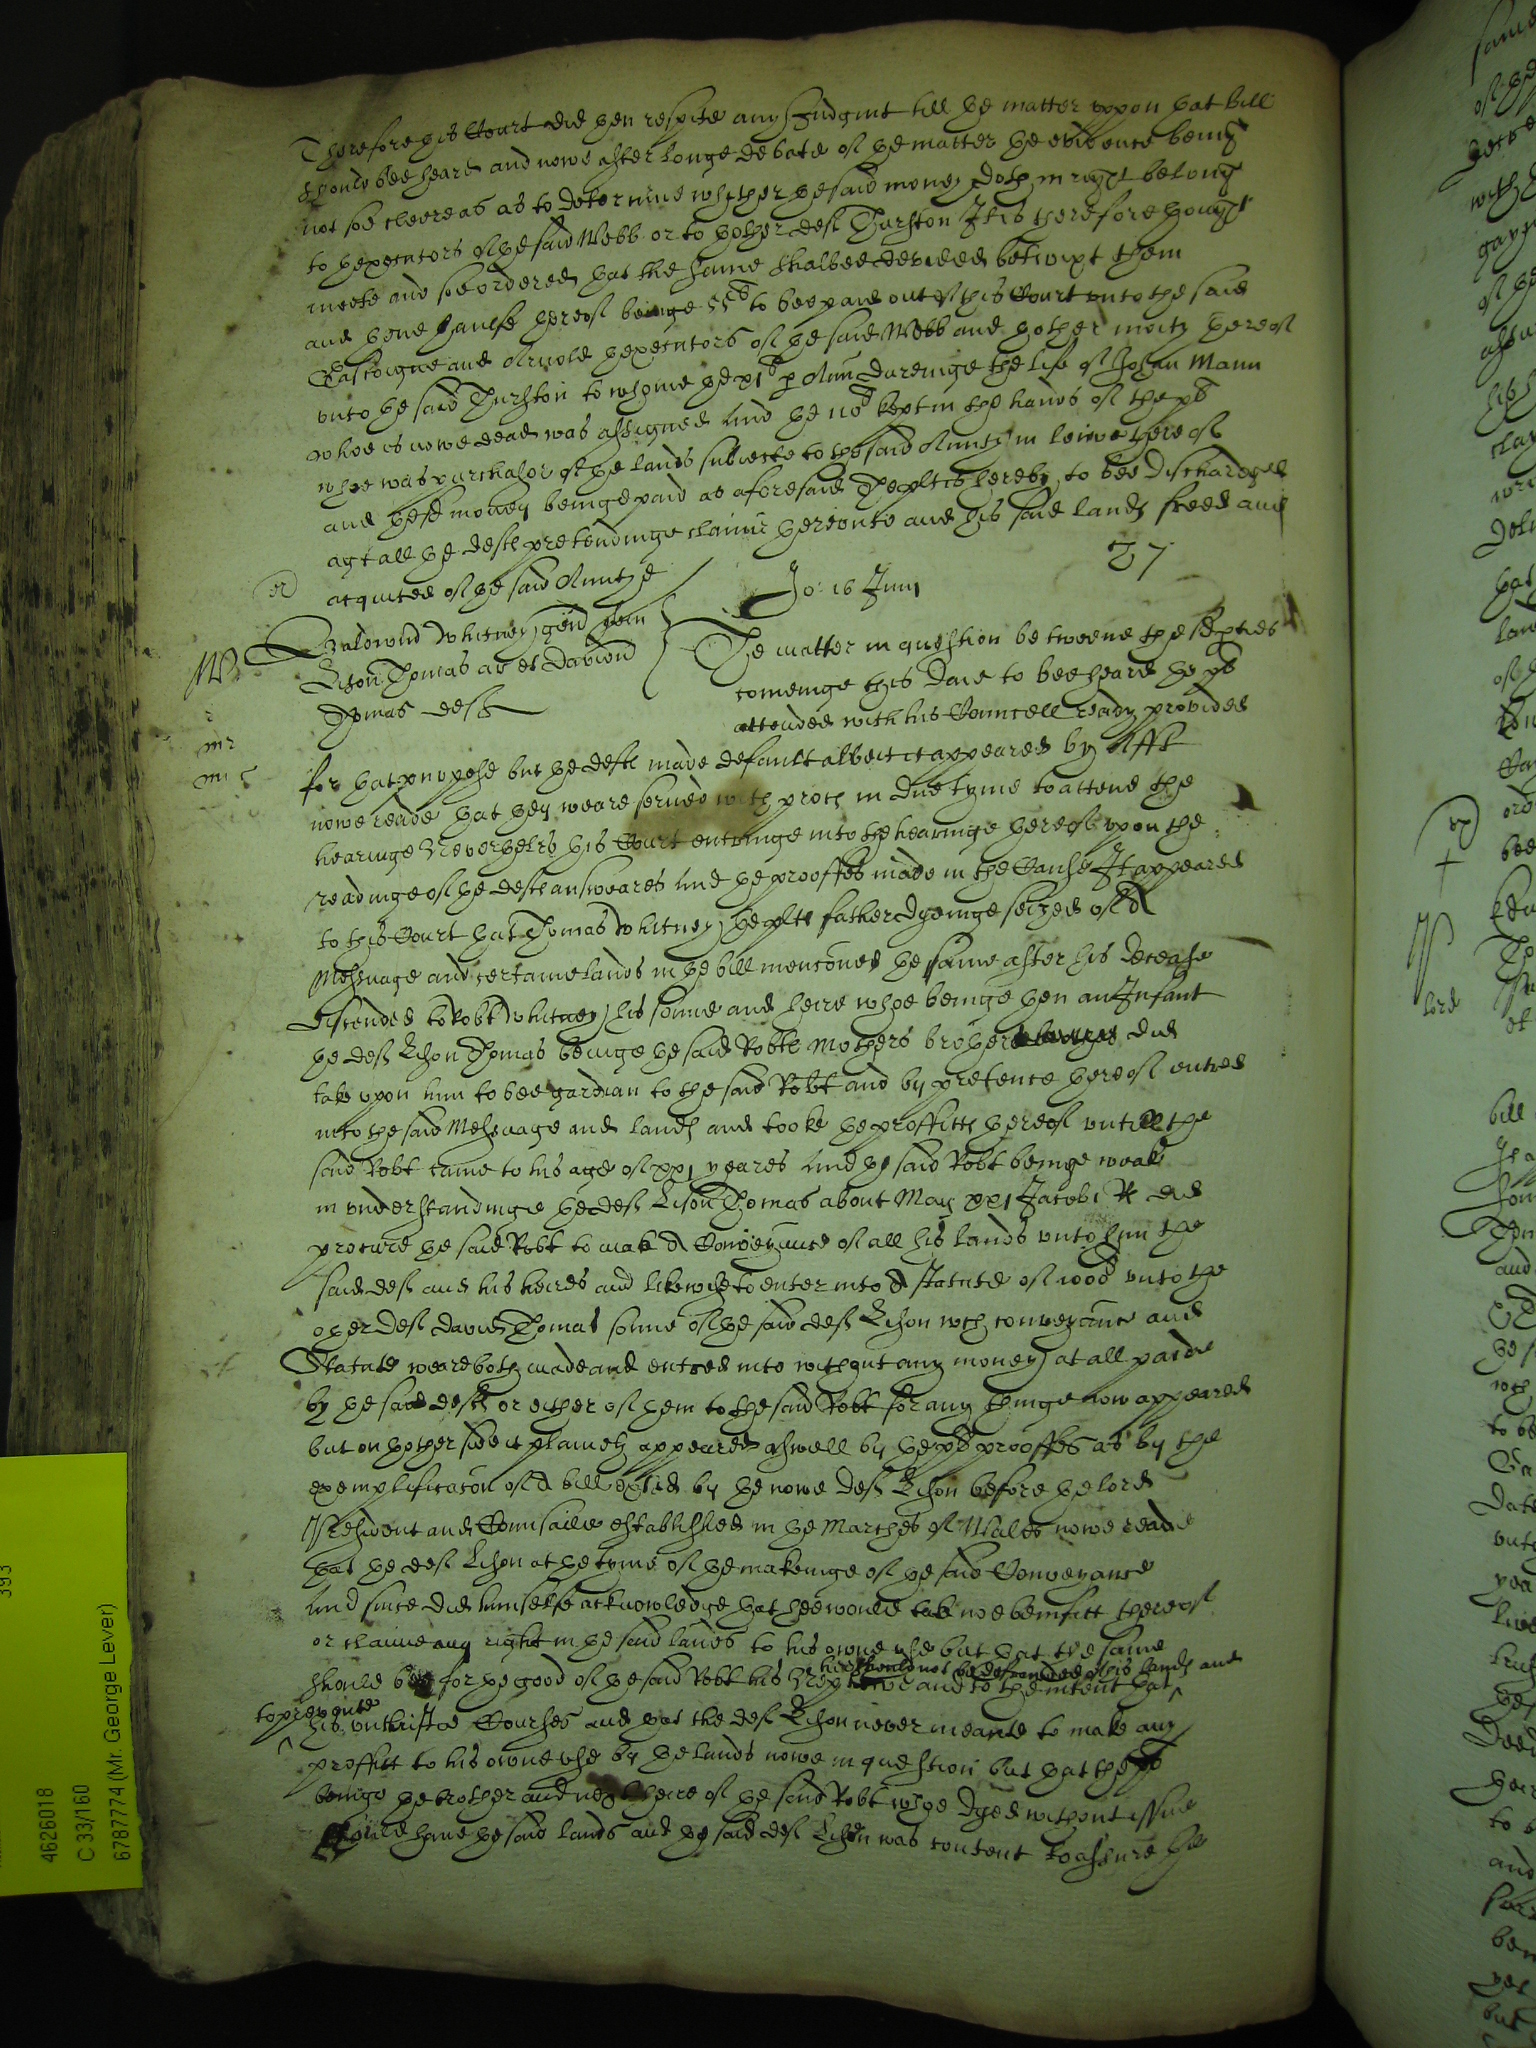 Therefore this Court did then respite any Judgmt till the matter uppon that bill
should bee heard and nowe after longe debate of the matter the evidence being
not soe cleere as as to determine whither the said money doth in right belong
to thexecutors of the said Webb or to thother deft Thurston It is therefore thought
meete and soe ordered that the same shalbee devided betwixt them
and thone haulfe thereof beinge 55li to bee paid out of this Court unto the said
Gascoigne and Arnold thexecutors of the said Webb and thother moity thereof
unto the said Thurston to whome the xili p Ann dureinge the life of Johan Mann
whoe is nowe dead was assigned And the 110li kept in the hands of the plt
whoe was purchasor of the lands subiecte to the said Annuity in leiwe thereof
and these moneyes beinge paid as aforesaid The plt is hereby to bee discharged
agt all the defts pretendinge claime thereunto and his said lands freed and
acquited of the said Annutye
37
Jo: 16 Junij
Baldwind Whitney gen plt
Lison Thomas ar et David
Thomas defts
The matter in question betweene the said pties
comeinge this Daie to bee heard the plt
attended with his Councell ready provided
for that purpose but the defts made default albeit it appeared by Afft
nowe reade that they weare served with proces in due tyme to attend the
hearinge Neverthelesse this Court entringe into the hearinge thereof upon the
readinge of the defts answeares And the prooffes made in the Cause It appeared
to this Court that Thomas Whitney the plts father dyeinge seized of A
Messuage and certaine lands in the bill menconed the same after his decease
discended to Robt Whitney his sonne and heire whoe beinge then an Infant
the deft Lison Thomas beinge the said Robts Mothers brother did
take upon him to bee gardian to the said Robt and by pretence thereof entred
into the said Messuage and lands and tooke the proffitts thereof untill the
said Robt came to his age of xxi yeares And the said Robt beinge weake
in understandinge the deft Lison Thomas about May xxi Jacobi R did
procure the said Robt to make A Conveyance of all his lands unto him the
said deft and his heires and likewise to enter into A statute of 1000li unto the
other deft David Thomas sonne of the said deft Lison wch conveyance and
Statute weare both made and entred into without any money at all paide
by the said defts or either of them to the said Robt for any thinge now appeared
but on thother side it plainely appeared aswell by the plts prooffes as by the
exemplificacon of A bill exhited by the nowe deft Lison before the lord
President and Counsaile established in the Marches of Wales nowe reade
that the deft Lison at the tyme of the makeinge of the said Conveyance
And since did himselfe acknowledge that hee would take noe benifitt thereof
or claime any right in the said lands to his owne use but that the same
hee should not be defrauded of his lands and
should bee for the good of the said Robt his Nephewe and to the intent that
to prevente
his unthriftie Courses and yet the deft Lison never meante to make any
proffitt to his owne use by the lands nowe in question but that the plt
beinge the brother and next heire of the said Robt whoe dyed without issue
should have the said lands and the said deft Lison was content to assure the
393
4626018
C 33/160
6787774 (Mr. George Lever)